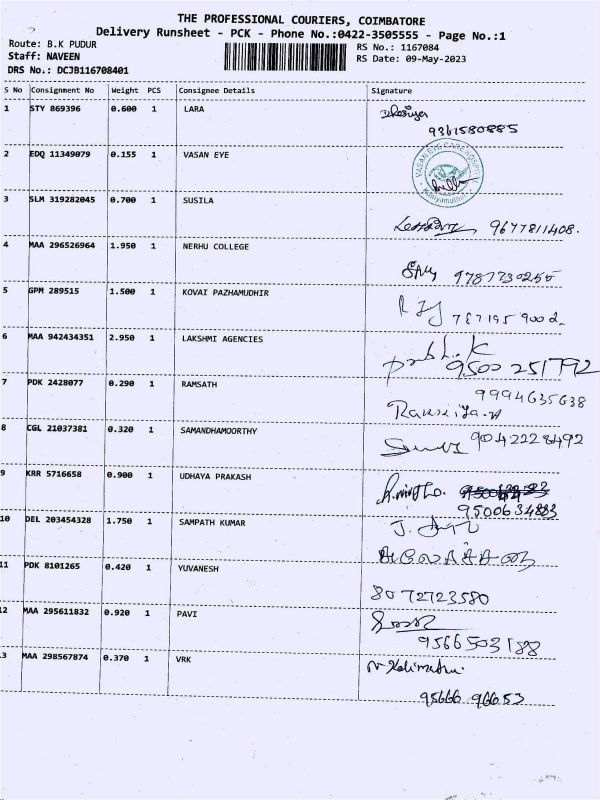 THE PROFESSIONAL COURIERS, COIMBATORE
Delivery Runsheet - PCK - Phone No.:0422-3505555 - Page No.:1
Route: B.K PUDUR
RS No.: 1167084
Staff: NAVEEN
RS Date: 09-May-2023
DRS No.: DCJB116708401
S No Consignment No Weight PCS Consignee Details Signature
1 STY 869396 0.600 1 LARA
9361580885
2 EDQ 11349079 0.155 1 VASAN EYE
VASAN EYE CARE HOSPITAL
3 SLM 319282045 0.700 1 SUSILA
9677811408.
4 MAA 296526964 1.950 1 NERHU COLLEGE
9787730255
5 GPM 289515 1.500 1 KOVAI PAZHAMUDHIR
787195 9002
6 MAA 942434351 2.950 1 LAKSHMI AGENCIES
9500 251792
7 PDK 2428077 0.290 1 RAMSATH
9994635638
8 CGL 21037381 0.320 1 SAMANDHAMOORTHY
9042228492
9 KRR 5716658 0.900 1 UDHAYA PRAKASH
9500634883
10 DEL 203454328 1.750 1 SAMPATH KUMAR
11 PDK 8101265 0.420 1 YUVANESH
8072723580
12 MAA 295611832 0.920 1 PAVI
9566503188
3 MAA 298567874 0.370 1 VRK
95666 96653